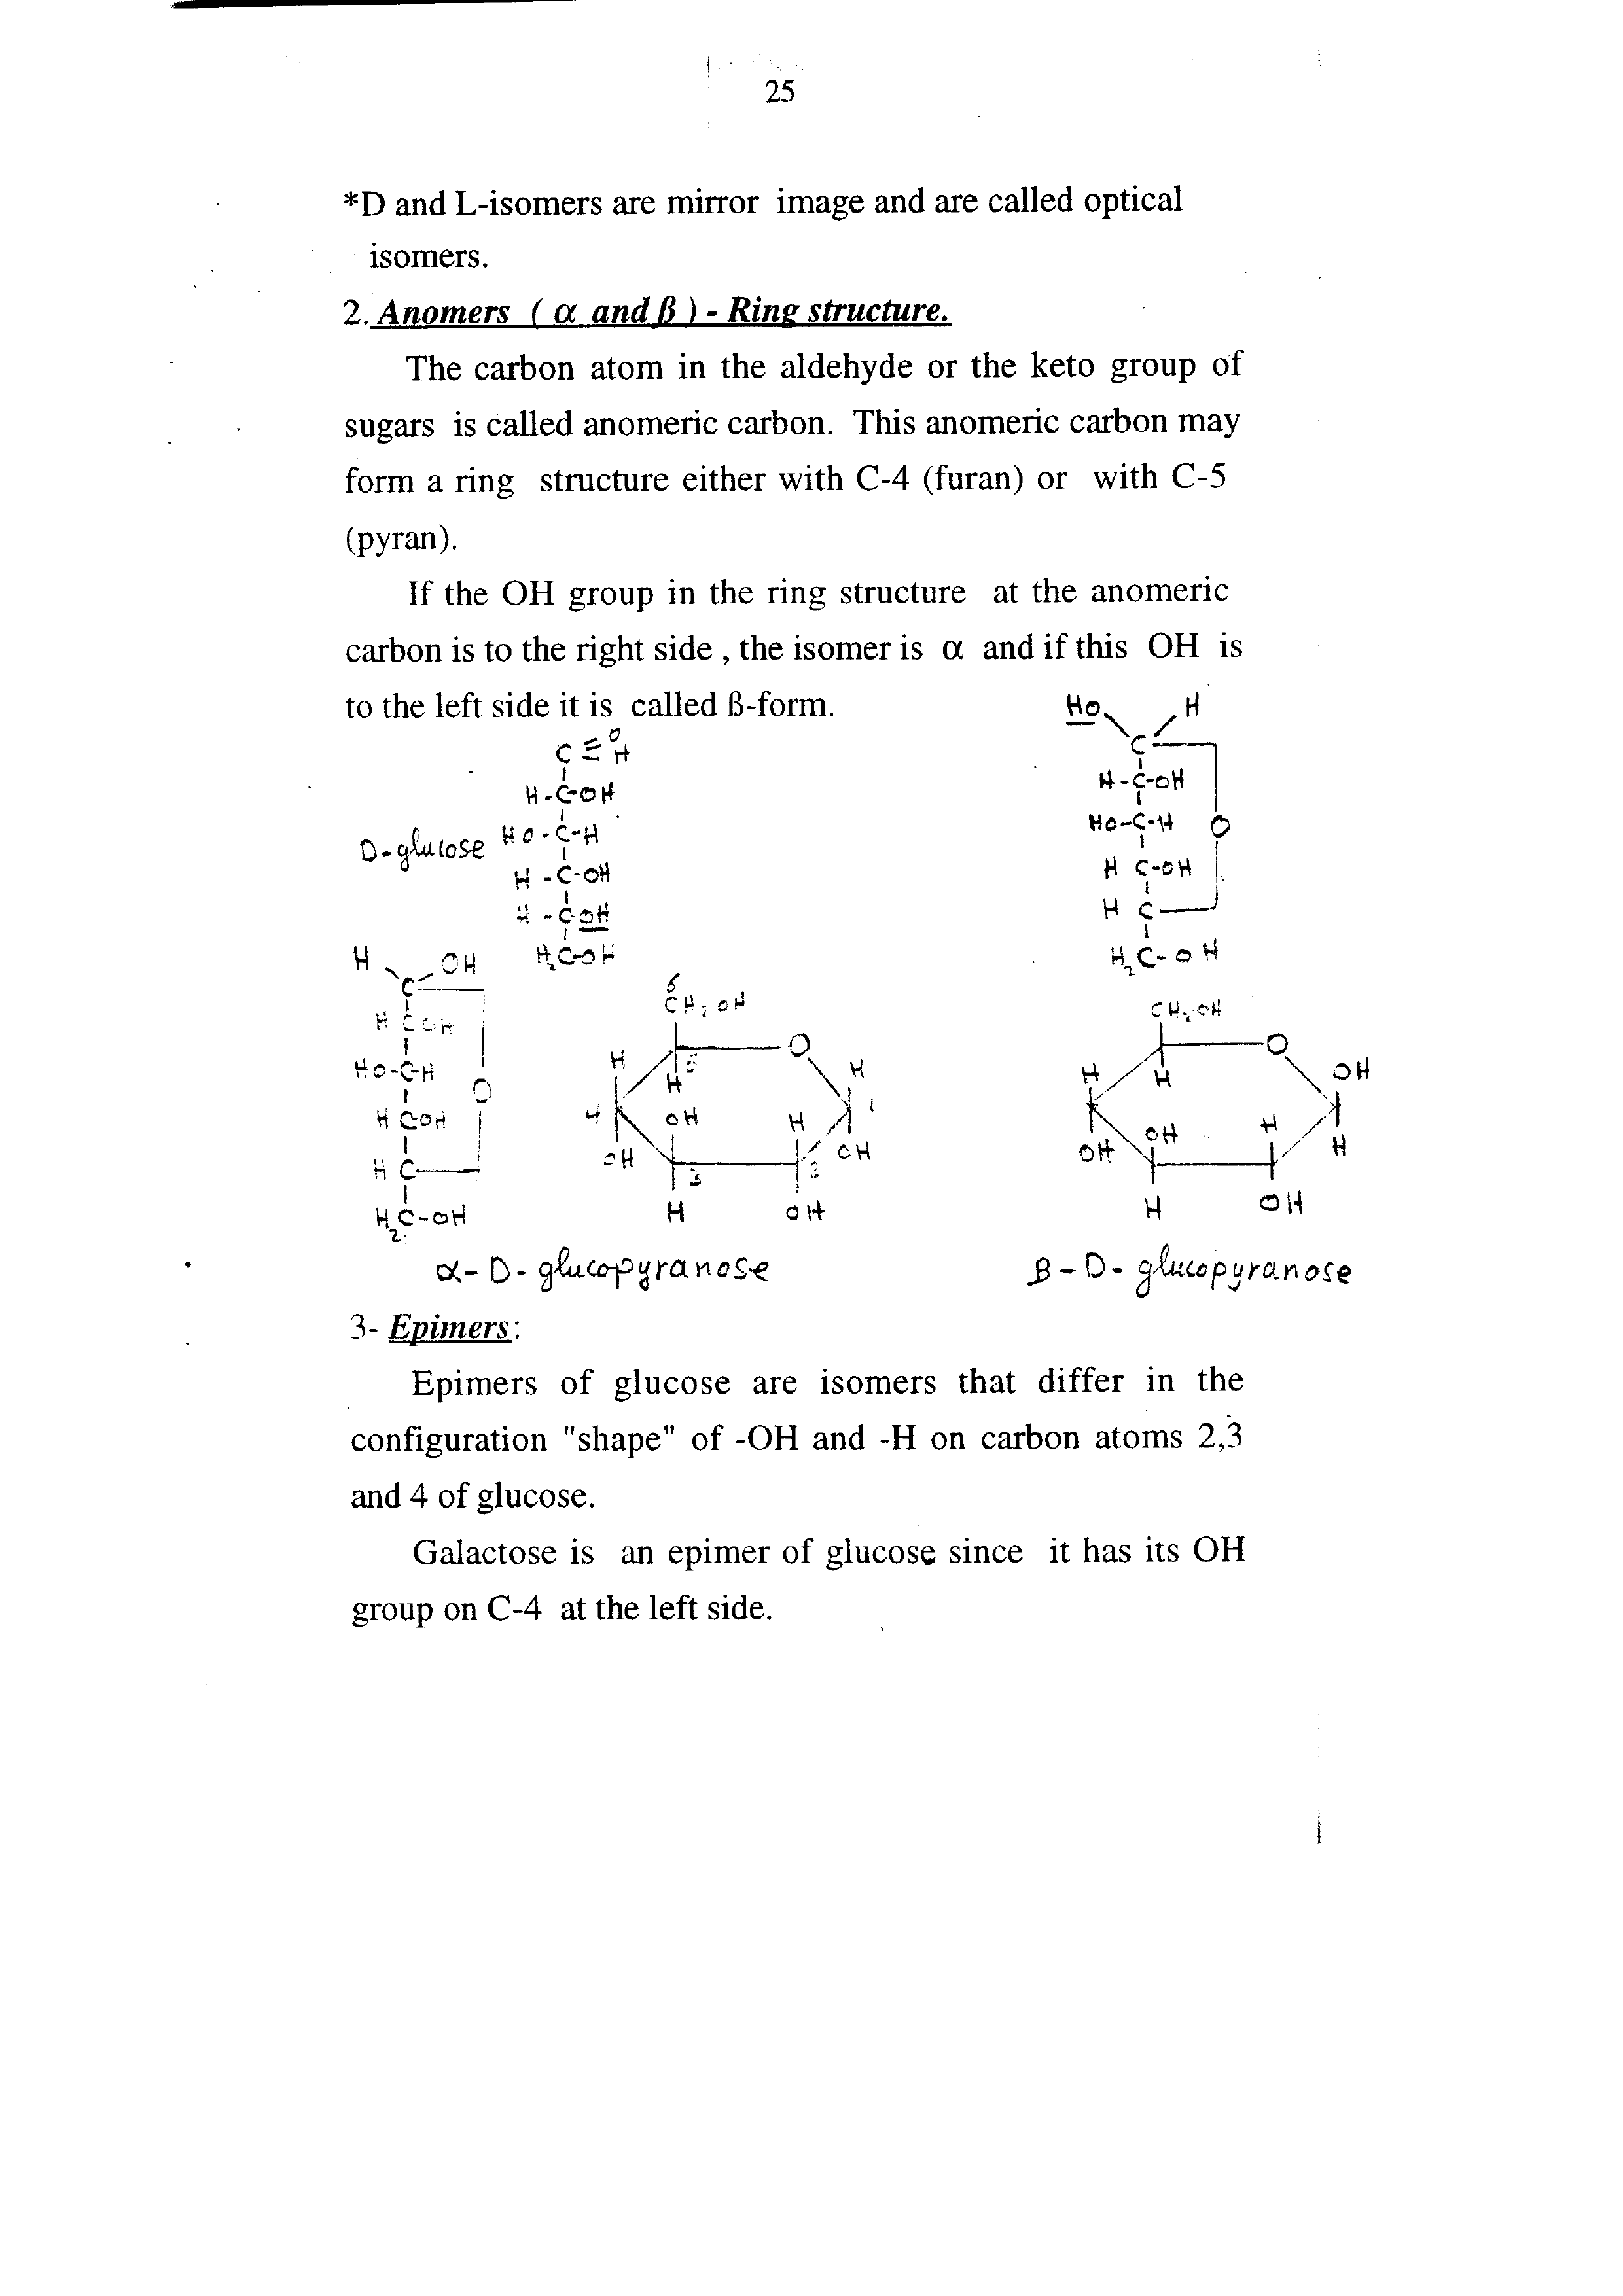 25
*D and L-isomers are mirror image and are called optical
isomers.
2. Anomers ( α and ß ) - Ring structure.
The carbon atom in the aldehyde or the keto group of
sugars is called anomeric carbon. This anomeric carbon may
form a ring structure either with C-4 (furan) or with C-5
(pyran).
If the OH group in the ring structure at the anomeric
carbon is to the right side , the isomer is α and if this OH is
to the left side it is called ß-form.
C O H
H-C-OH
D-glucose HO-C-H
H-C-OH
H-C-OH
H2C-OH
HO H
C
H-C-OH
HO-C-H O
H C-OH
H C
H2C-OH
H OH
C
H COH
HO-C-H
O
H COH
H C
H2C-OH
6
CH2OH
O
H 5 H
H
4 OH H 1
OH 3 2 OH
H OH
CH2OH
O
H H OH
OH OH H H
H OH
α-D-glucopyranose
β-D-glucopyranose
3- Epimers:
Epimers of glucose are isomers that differ in the
configuration "shape" of -OH and -H on carbon atoms 2,3
and 4 of glucose.
Galactose is an epimer of glucose since it has its OH
group on C-4 at the left side.